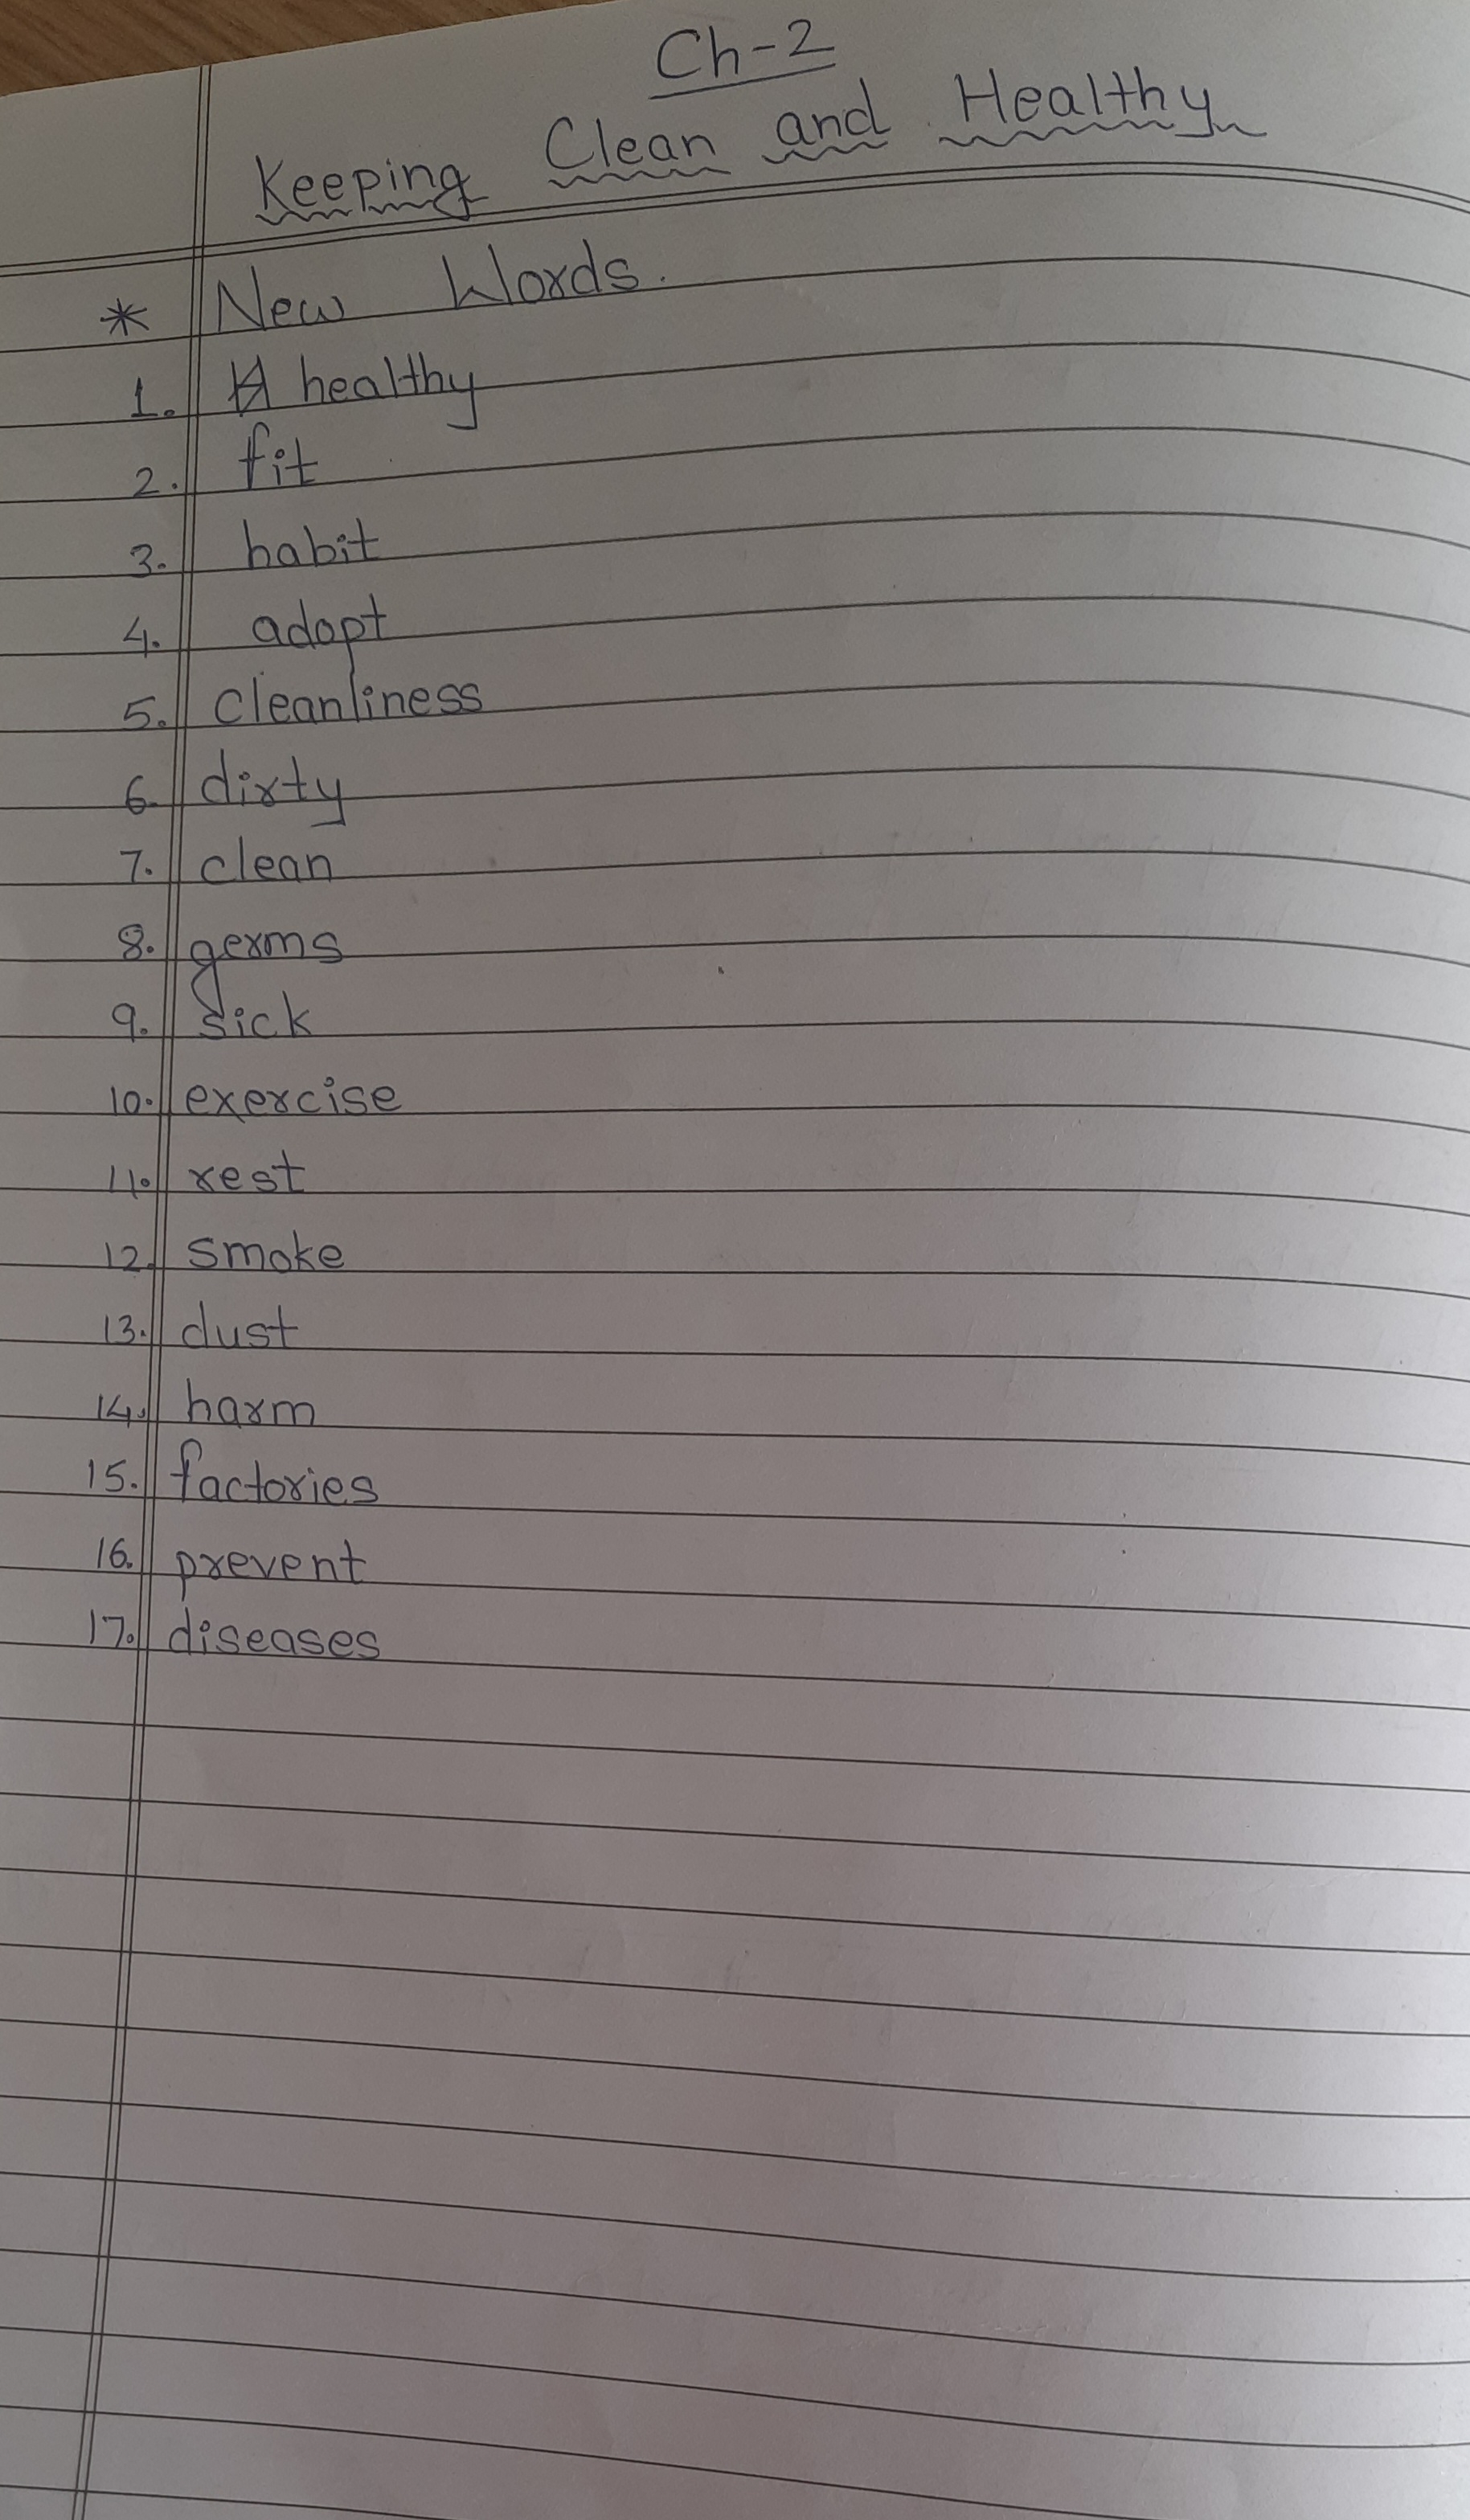 Ch-2
Keeping Clean and Healthy
* New Words.
1. healthy
2. fit
3. habit
4. adopt
5. cleanliness
6. dirty
7. clean
8. germs
9. sick
10. exercise
11. rest
12. smoke
13. dust
14. harm
15. factories
16. prevent
17. diseases